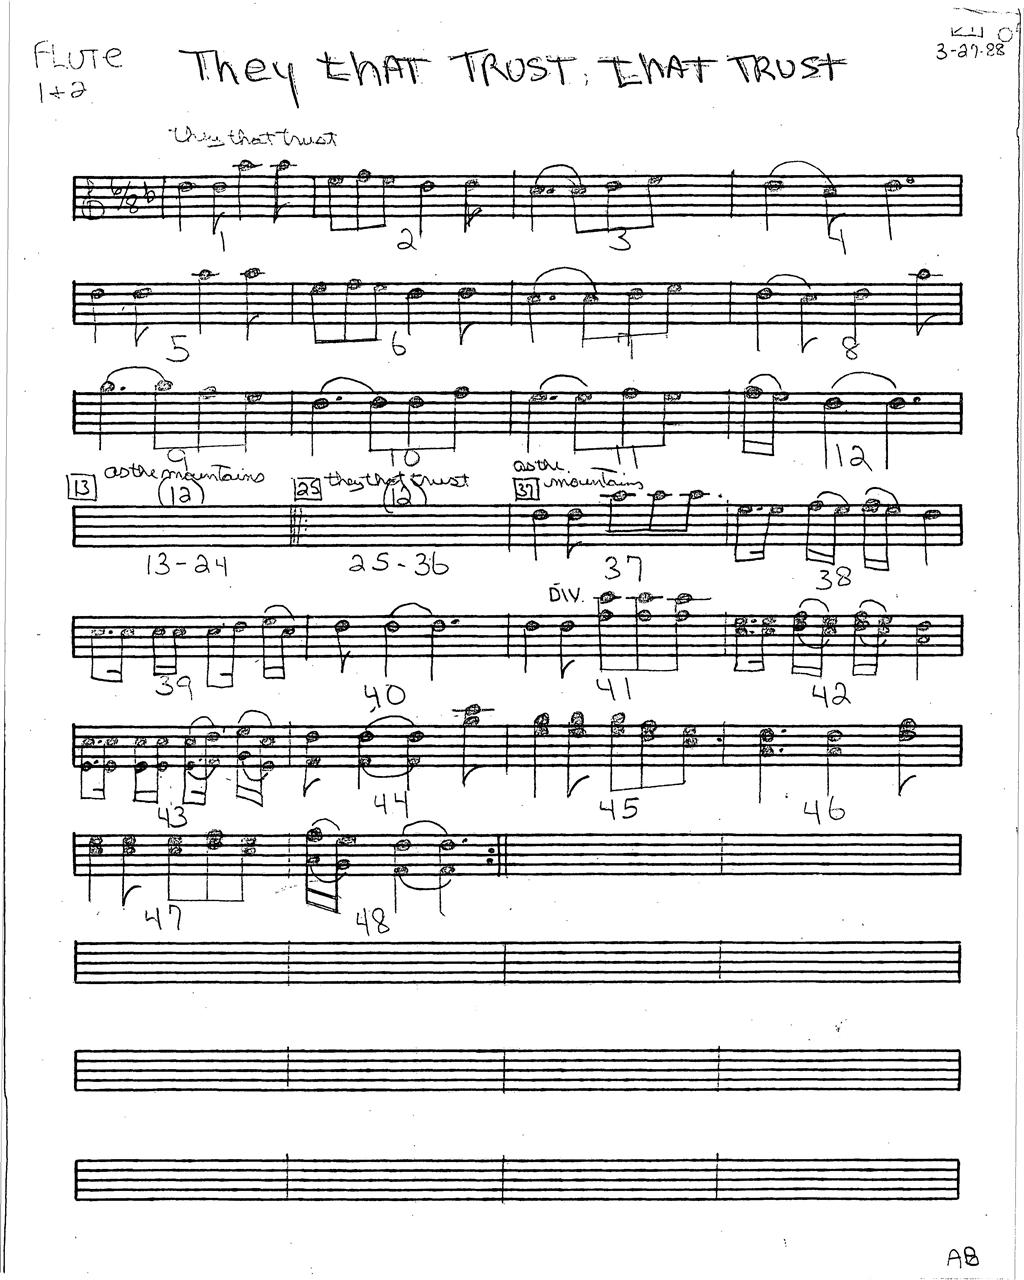 FLUTE
1+2
They that TRUST, that TRUST
3-27-88
they that trust
6/8
1 2 3 4
5 6 7 8
9 10 11 12
13 as the mountains (12) 25 they that trust (12) 37 as the mountains
13-24 25-36 37 38
DIV.
39 40 41 42
43 44 45 46
47 48
AB